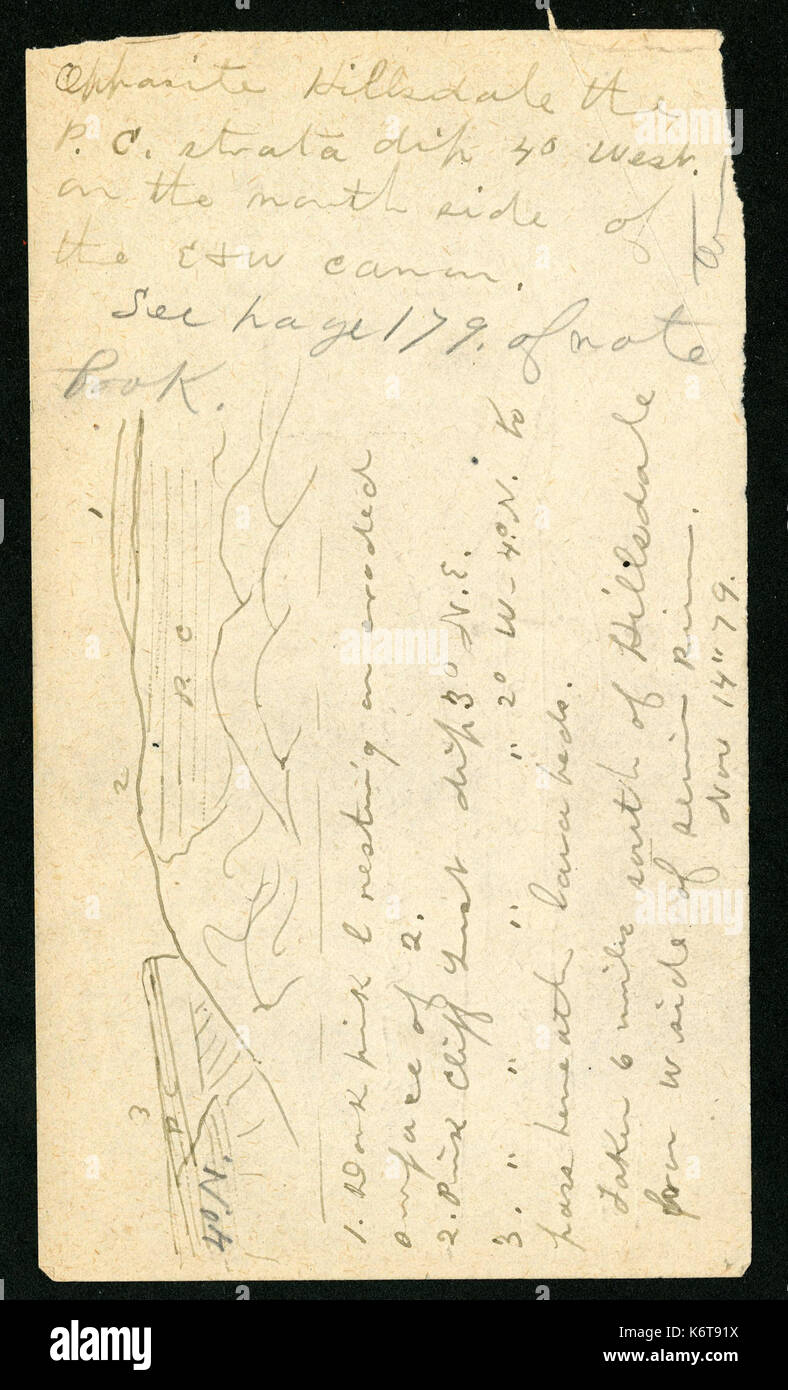 Opposite Hillsdale the
P. C. strata dip 4° West.
on the north side of
the E & W canon.
See page 179. of note
book.
1
2
3
P. C
P C
4° N.
1. Dark pink l resting on eroded
surface of 2.
2. Pink Cliff just dip 3° N.E.
3. " " " " 2° W - 4° N. to
pass beneath lava beds.
Taken 6 miles south of Hillsdale
from W side of Sevier River.
Nov 14" 79.
alamy
Image ID: K6T91X
www.alamy.com